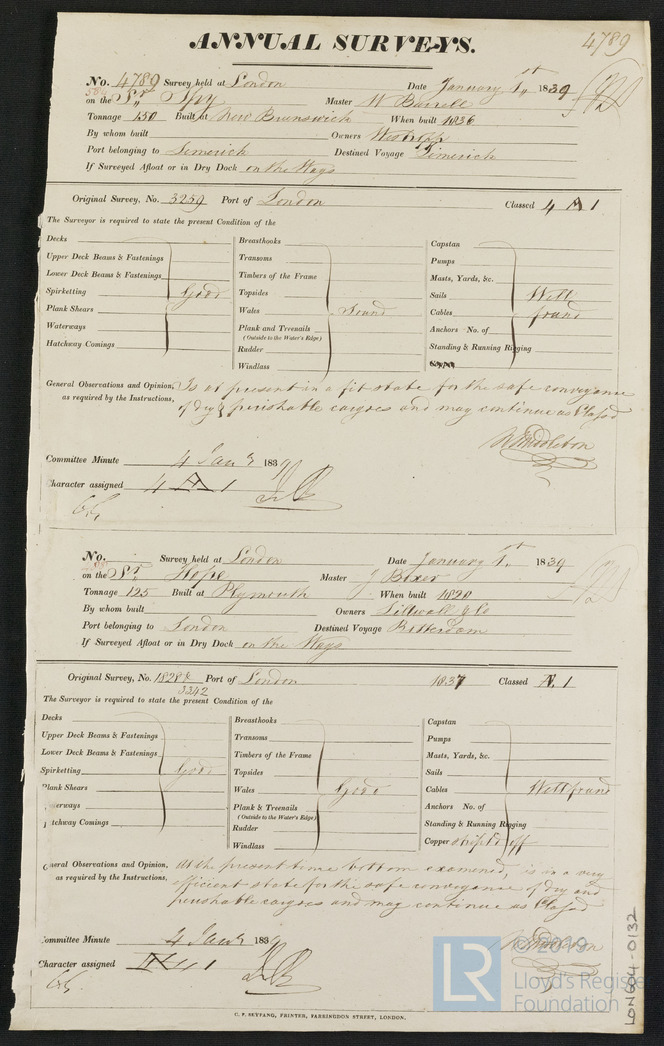 ANNUAL SURVEYS.
4789
No. 4789 Survey held at London Date January 1st 1839
on the Sr. Spy Master W Barrell
Tonnage 150 Built at New Brunswick When built 1836
By whom built Owners Westropp
Port belonging to Limerick Destined Voyage Limerick
If Surveyed Afloat or in Dry Dock on the Ways
Original Survey, No. 3259 Port of London Classed 4 A 1
The Surveyor is required to state the present Condition of the
Decks
Upper Deck Beams & Fastenings
Lower Deck Beams & Fastenings
Spirketting Good
Plank Shears
Waterways
Hatchway Comings
Breasthooks
Transoms
Timbers of the Frame
Topsides
Wales Sound
Plank and Treenails
(Outside to the Water's Edge)
Rudder
Windlass
Capstan
Pumps
Masts, Yards, &c.
Sails Well
Cables found
Anchors No. of
Standing & Running Rigging
General Observations and Opinion, Is at present in a fit state for the safe conveyance
as required by the Instructions, of dry & perishable cargoes and may continue as Classed
W Middleton
Committee Minute 4 Jany 1839
Character assigned 4 A 1
No. Survey held at London Date January 1st 1839
on the Sr. Hope Master J Boxer
Tonnage 125 Built at Plymouth When built 1820
By whom built Owners & Co
Port belonging to London Destined Voyage Rotterdam
If Surveyed Afloat or in Dry Dock on the Ways
Original Survey, No. 18284 Port of London 1837 Classed Æ 1
3342
The Surveyor is required to state the present Condition of the
Decks
Upper Deck Beams & Fastenings
Lower Deck Beams & Fastenings
Spirketting Good
Plank Shears
erways
tchway Comings
Breasthooks
Transoms
Timbers of the Frame
Topsides
Wales Good
Plank & Treenails
(Outside to the Water's Edge)
Rudder
Windlass
Capstan
Pumps
Masts, Yards, &c.
Sails
Cables Well found
Anchors No. of
Standing & Running Rigging
Copper stript off
General Observations and Opinion, At the present time bottom examined, is in a very
as required by the Instructions, efficient state for the safe conveyance of dry and
perishable cargoes and may continue as Classed
W Middleton
Committee Minute 4 Jany 1839
Character assigned Æ 1
C. F. SEYFANG, PRINTER, FARRINGDON STREET, LONDON.
LON604-0132
LR
© 2019
Lloyd's Register
Foundation